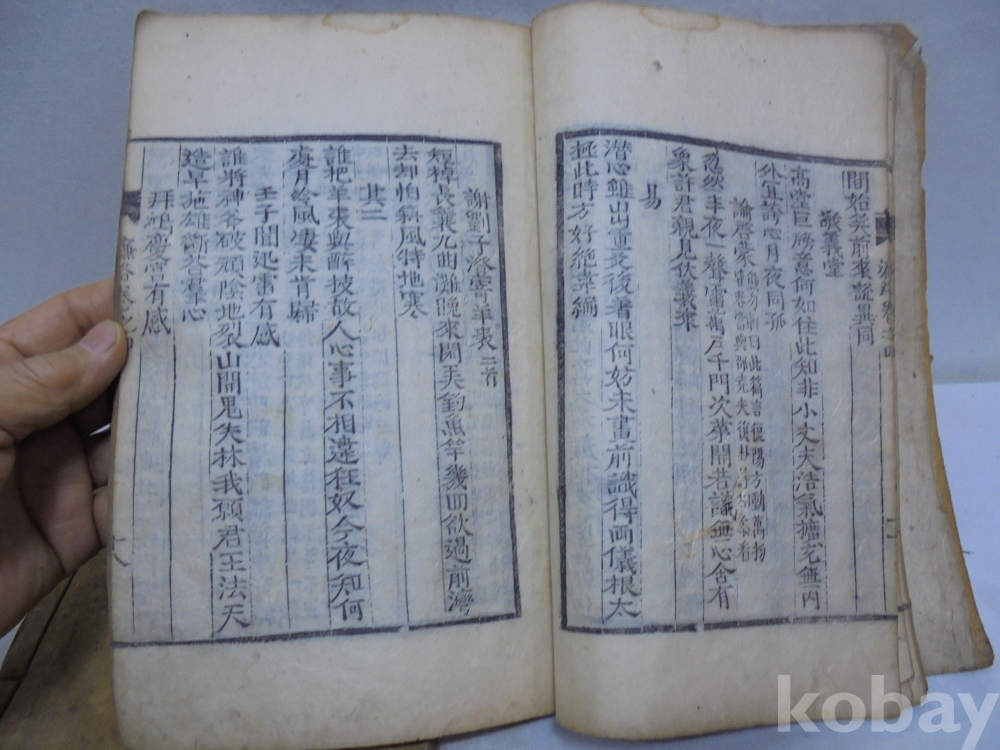 間始笑前來説異同
敬義堂
高堂巨牓意何如住此知非小丈夫浩氣擴充無内
外肯誇心月夜同孤
論啓蒙
忽然半夜一聲雷萬戶千門次第開若識無心含有
象許君親見伏羲來
易
潜心雖出重爻後著眼何妨未畫前識得兩儀根太
極此時方好絶韋編
謝劉子澄寄羊裘 二首
短棹長蓑九曲灘晚來閑弄釣魚竿幾回欲過前灣
去却怕斜風特地寒
其二
誰把羊裘與醉披故人心事不相違狂奴今夜知何
處月冷風凄未肯歸
壬子聞迅雷有感
誰將神斧破頑陰地裂山開鬼失林我願君王法天
造早施雄斷答羣心
拜鴻慶宮有感
十八
kobay